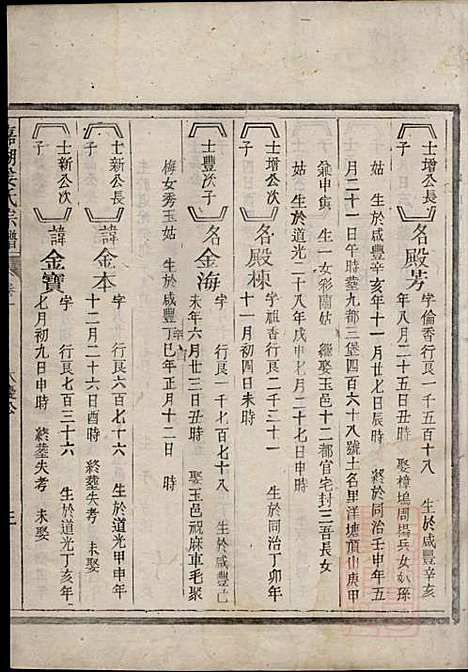 士增公長子
名殿芳
字倫香行艮一千五百十八 生於咸豐辛亥
年八月二十五日丑時 娶樟塢周揚兵女
姑 生於咸豐辛亥年十一月廿七日辰時 終於同治壬申年五
月二十一日午時塟九都三堡四百六十八號土名里洋塘頂山庚甲
兼申寅 生一女彩蘭姑 繼娶玉邑十二都官宅封三吾長女
姑 生於道光二十八年戊申七月二十七日申時
士增公次子
名殿棟
字祖香行艮二千三十一 生於同治丁卯年
十一月初四日未時
士豐次子
名金海
字 行艮一千七百七十八 生於咸豐己
未年六月廿三日丑時 娶玉邑祝麻車毛聚
梅女秀玉姑 生於咸豐丁巳年正月十二日 時
士新公長子
諱金本
字 行艮七百六十六 生於道光甲申年
十二月二十六日酉時 終塟失考 未娶
士新公次子
諱金寶
字 行艮七百三十六 生於道光丁亥年
七月初九日申時 終塟失考 未娶